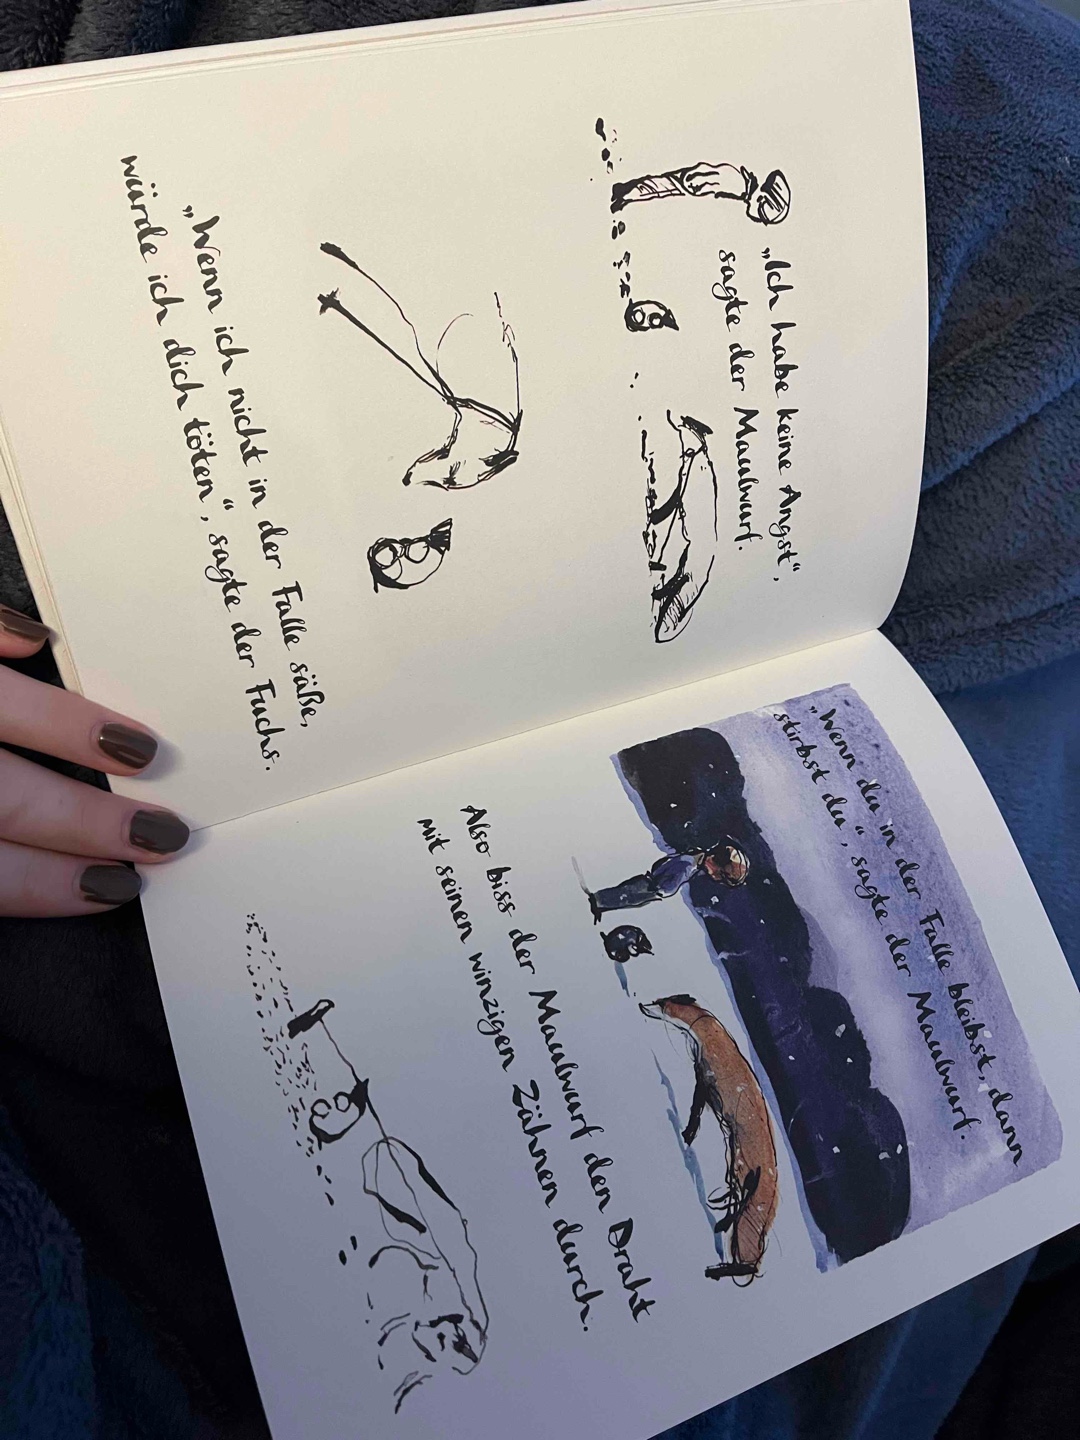 „Ich habe keine Angst“,
sagte der Maulwurf.
„Wenn ich nicht in der Falle säße,
würde ich dich töten“, sagte der Fuchs.
„Wenn du in der Falle bleibst, dann
stirbst du“, sagte der Maulwurf.
Also biss der Maulwurf den Draht
mit seinen winzigen Zähnen durch.